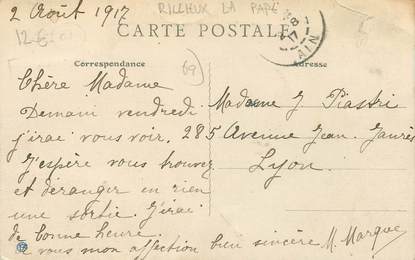 2 Août 1917
RILLIEUX LA PAPE
CARTE POSTALE
Correspondance
Adresse
69
8
17
AIN
Chère Madame
Demain vendredi
j'irai vous voir.
J'espère vous trouver
et déranger en rien
une sortie. J'irai
de bonne heure.
à vous mon affection bien sincère M. Marque
Madame J Piastri
285 Avenue Jean Jaurès
Lyon.